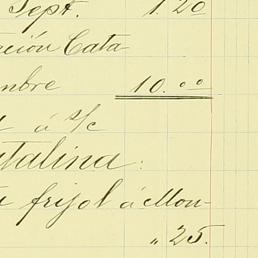 Sept. 1.20
ción Cata
mbre 10.00
á s/c
talina:
frijol á Mon-
" 25.